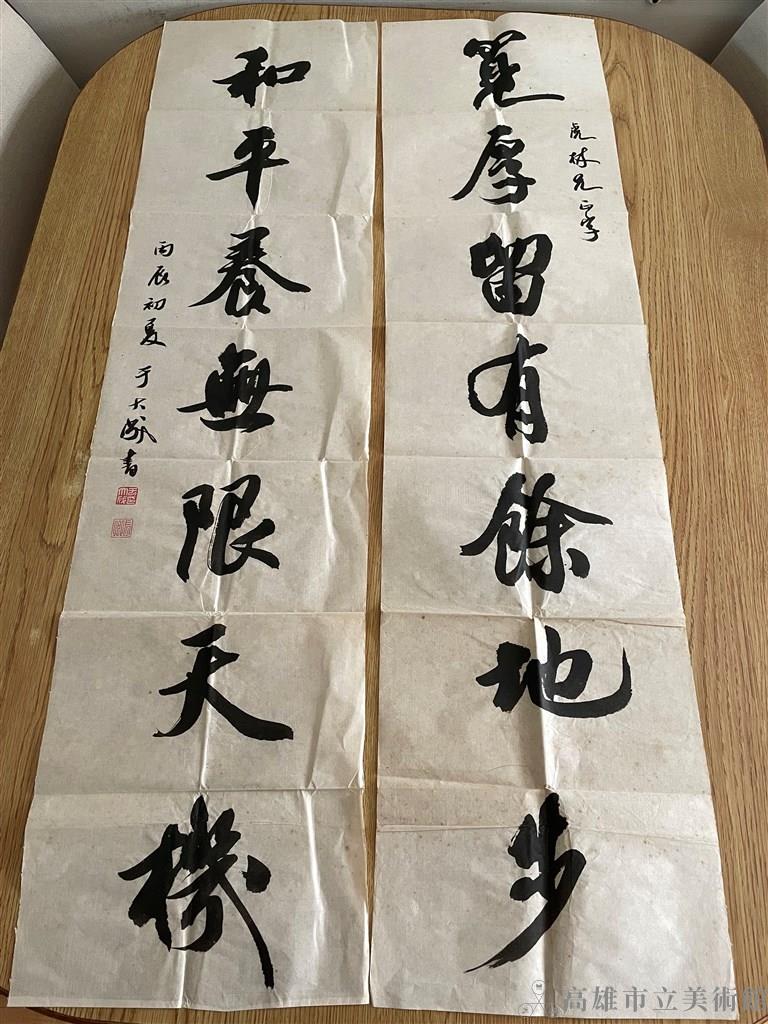 寬厚留有餘地步
虎林兄正字
和平養無限天機
丙辰初夏 于大成書
高雄市立美術館